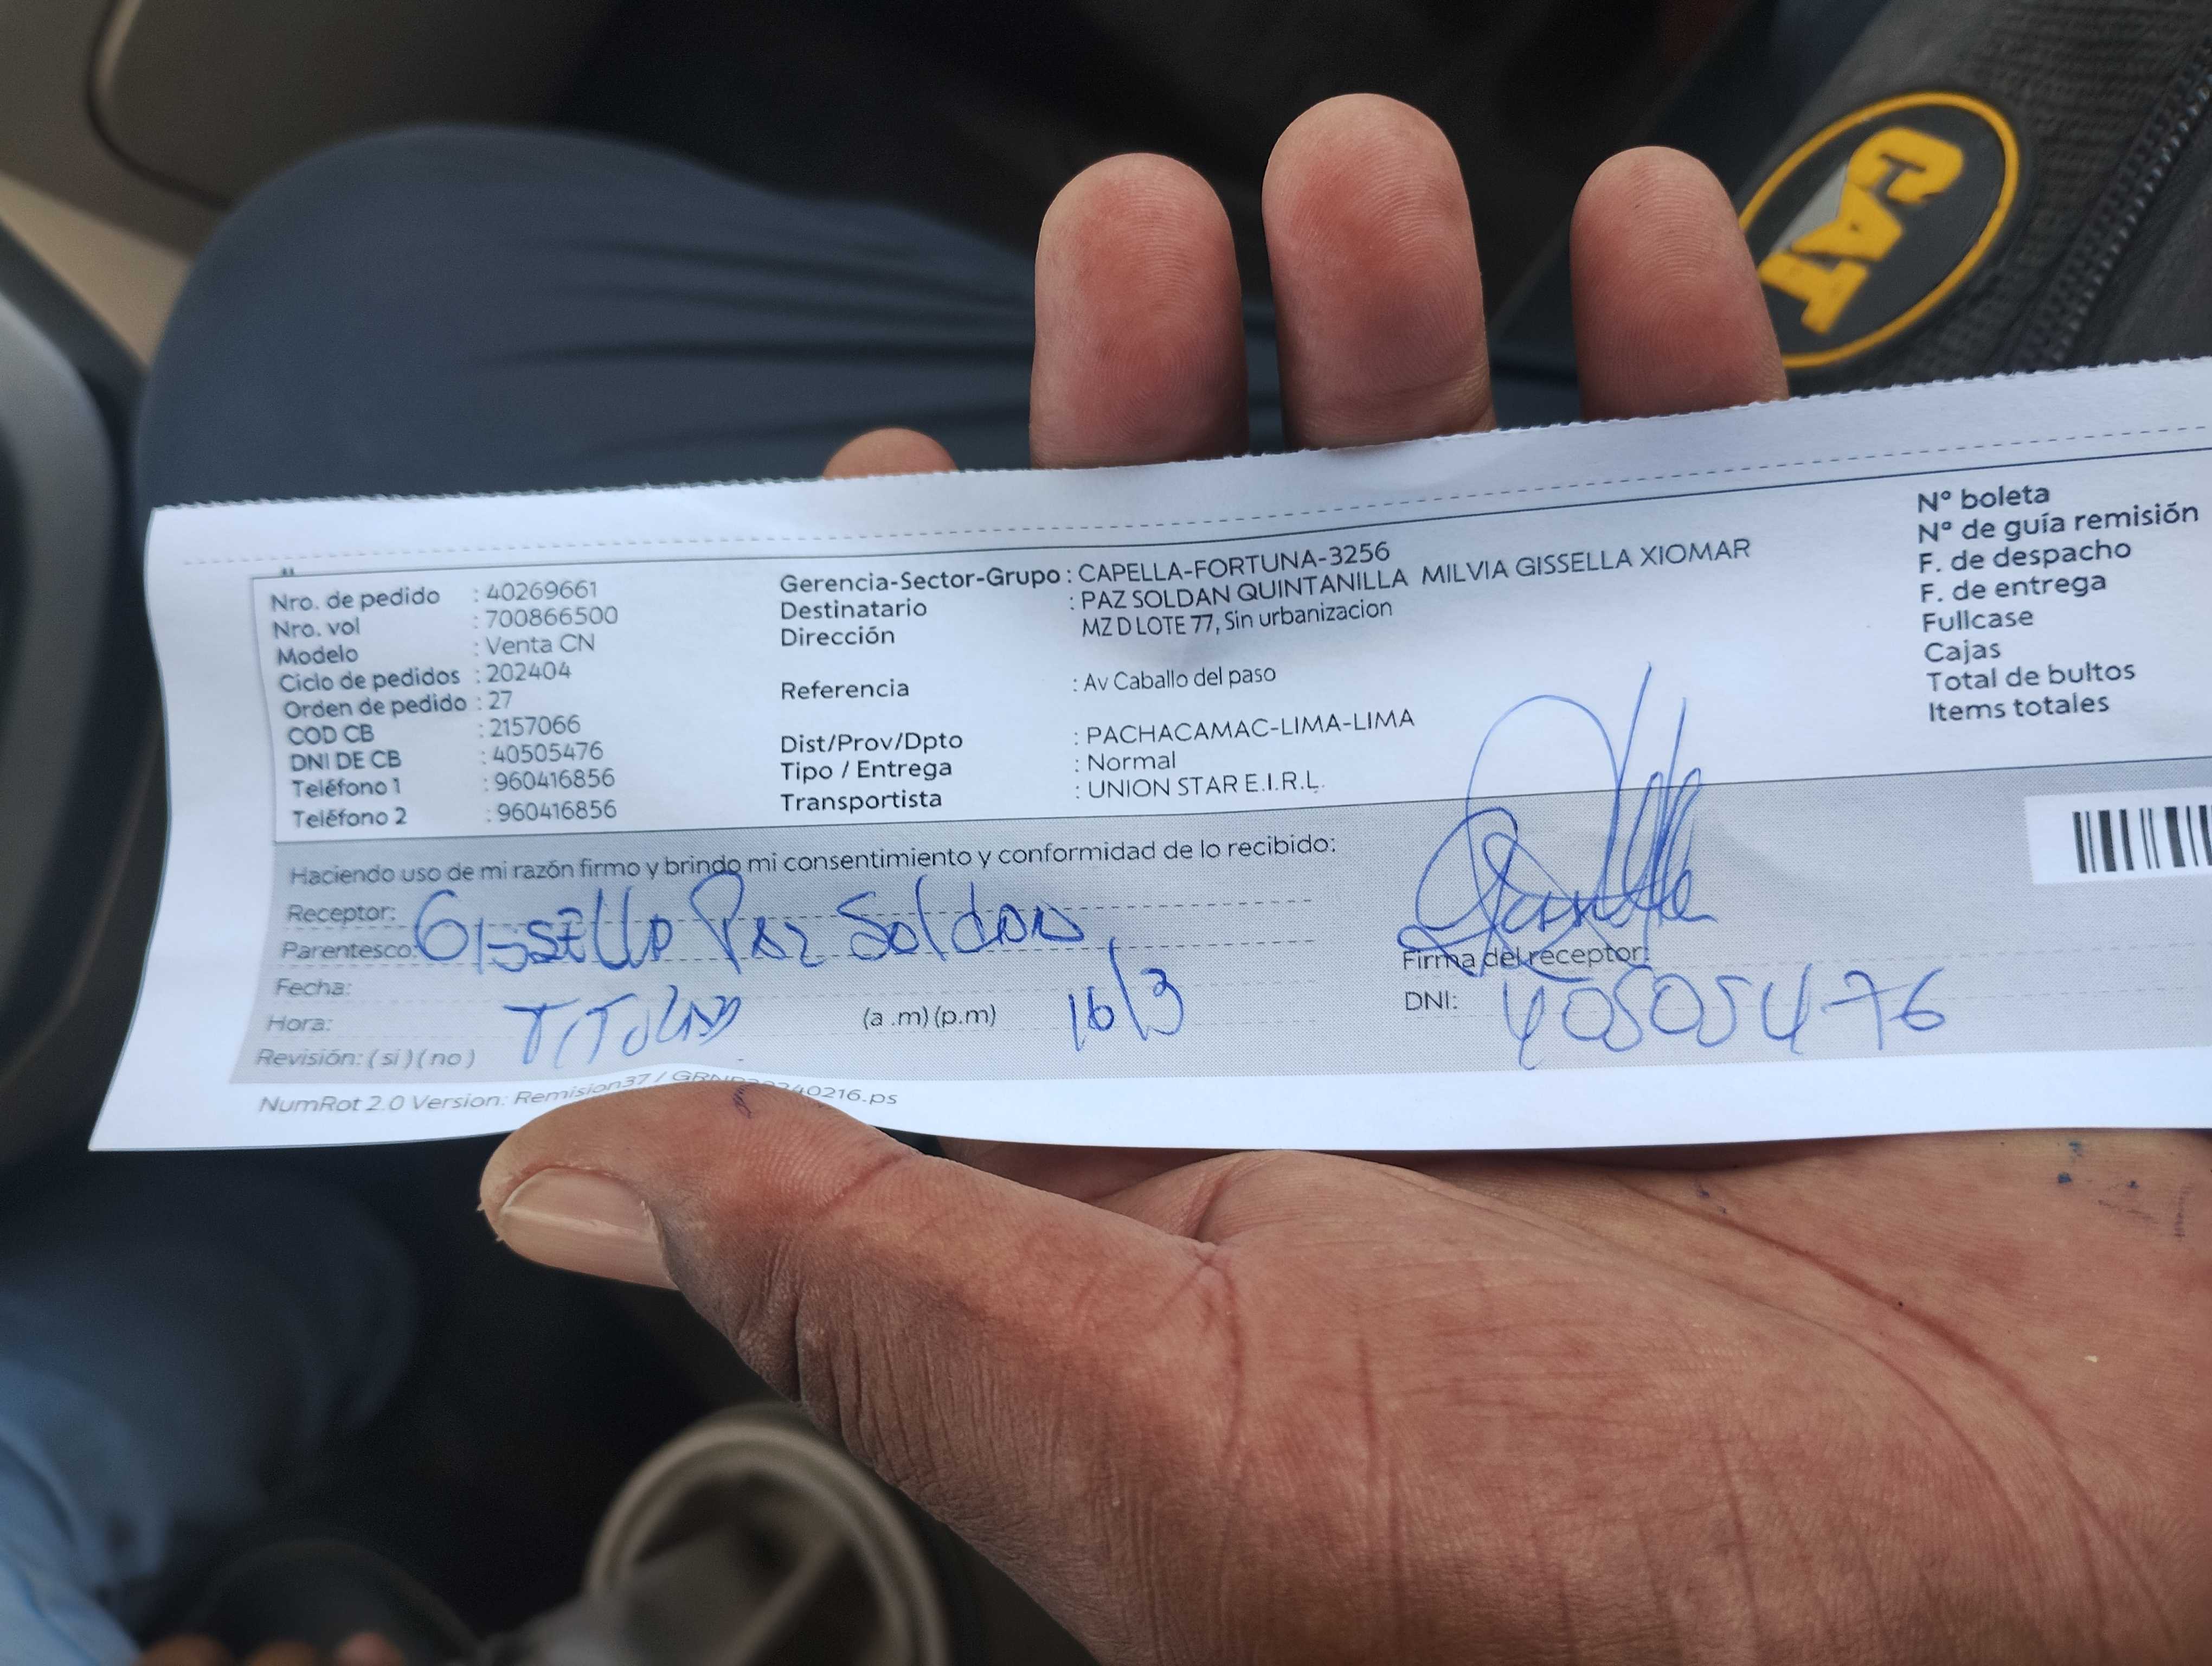 CAT
Nro. de pedido : 40269661
Nro. vol : 700866500
Modelo : Venta CN
Ciclo de pedidos : 202404
Orden de pedido : 27
COD CB : 2157066
DNI DE CB : 40505476
Teléfono 1 : 960416856
Teléfono 2 : 960416856
Gerencia-Sector-Grupo : CAPELLA-FORTUNA-3256
Destinatario : PAZ SOLDAN QUINTANILLA MILVIA GISSELLA XIOMAR
Dirección MZ D LOTE 77, Sin urbanizacion
Referencia : Av Caballo del paso
Dist/Prov/Dpto : PACHACAMAC-LIMA-LIMA
Tipo / Entrega : Normal
Transportista : UNION STAR E.I.R.L.
N° boleta
N° de guía remisión
F. de despacho
F. de entrega
Fullcase
Cajas
Total de bultos
Items totales
Haciendo uso de mi razón firmo y brindo mi consentimiento y conformidad de lo recibido:
Receptor:
Parentesco: Gissella Paz Soldan
Fecha:
Hora: (a .m) (p.m) 16/3
Revisión: ( si ) ( no )
Firma del receptor:
DNI: 40505476
NumRot 2.0 Version: Remision37 /